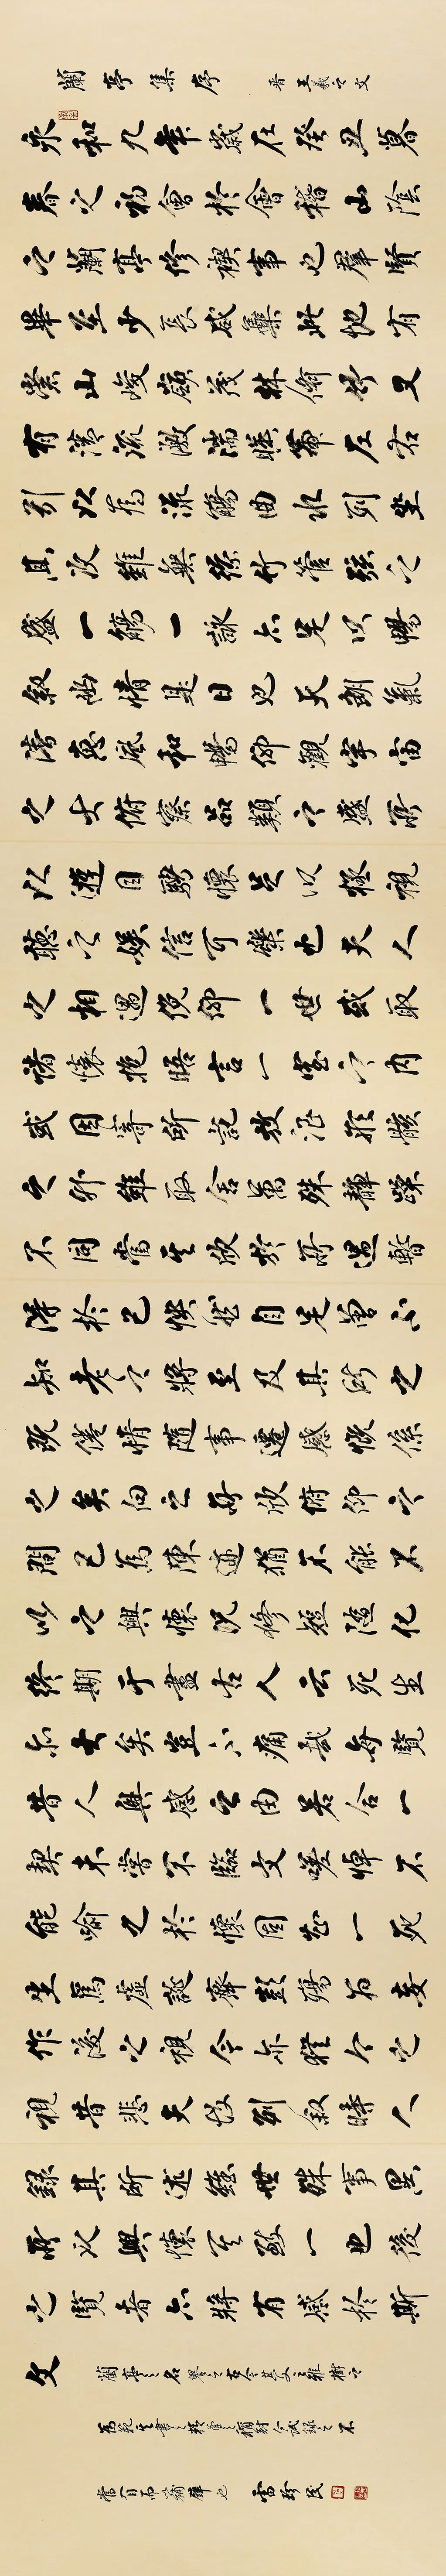 蘭亭集序 晋王羲之文
永和九年歲在癸丑暮
春之初會於會稽山陰
之蘭亭修禊事也群賢
畢至少長咸集此地有
崇山峻嶺茂林脩竹又
有清流激湍暎帶左右
引以為流觴曲水列坐
其次雖無絲竹管弦之
盛一觴一詠亦足以暢
叙幽情是日也天朗氣
清惠風和暢仰觀宇宙
之大俯察品類之盛所
以遊目騁懷足以極視
聽之娛信可樂也夫人
之相遇俛仰一世或取
諸懷抱晤言一室之內
或因寄所託放浪形骸
之外雖取舍萬殊靜躁
不同當其欣於所遇暫
得於己快然自足曾不
知老之將至及其所之
既倦情隨事遷感慨係
之矣向之所欣俯仰之
間已為陳迹猶不能不
以之興懷況修短隨化
終期于盡古人云死生
亦大矣豈不痛哉每覽
昔人興感之由若合一
契未嘗不臨文嗟悼不
能喻之於懷固知一死
生為虛誕齊彭殤為妄
作後之視今亦猶今之
視昔悲夫故列叙時人
錄其所述雖世殊事異
所以興懷其致一也後
之覽者亦將有感於斯
文 蘭亭之名譽之古今其文之雅
為範
補壁也 雷珍民